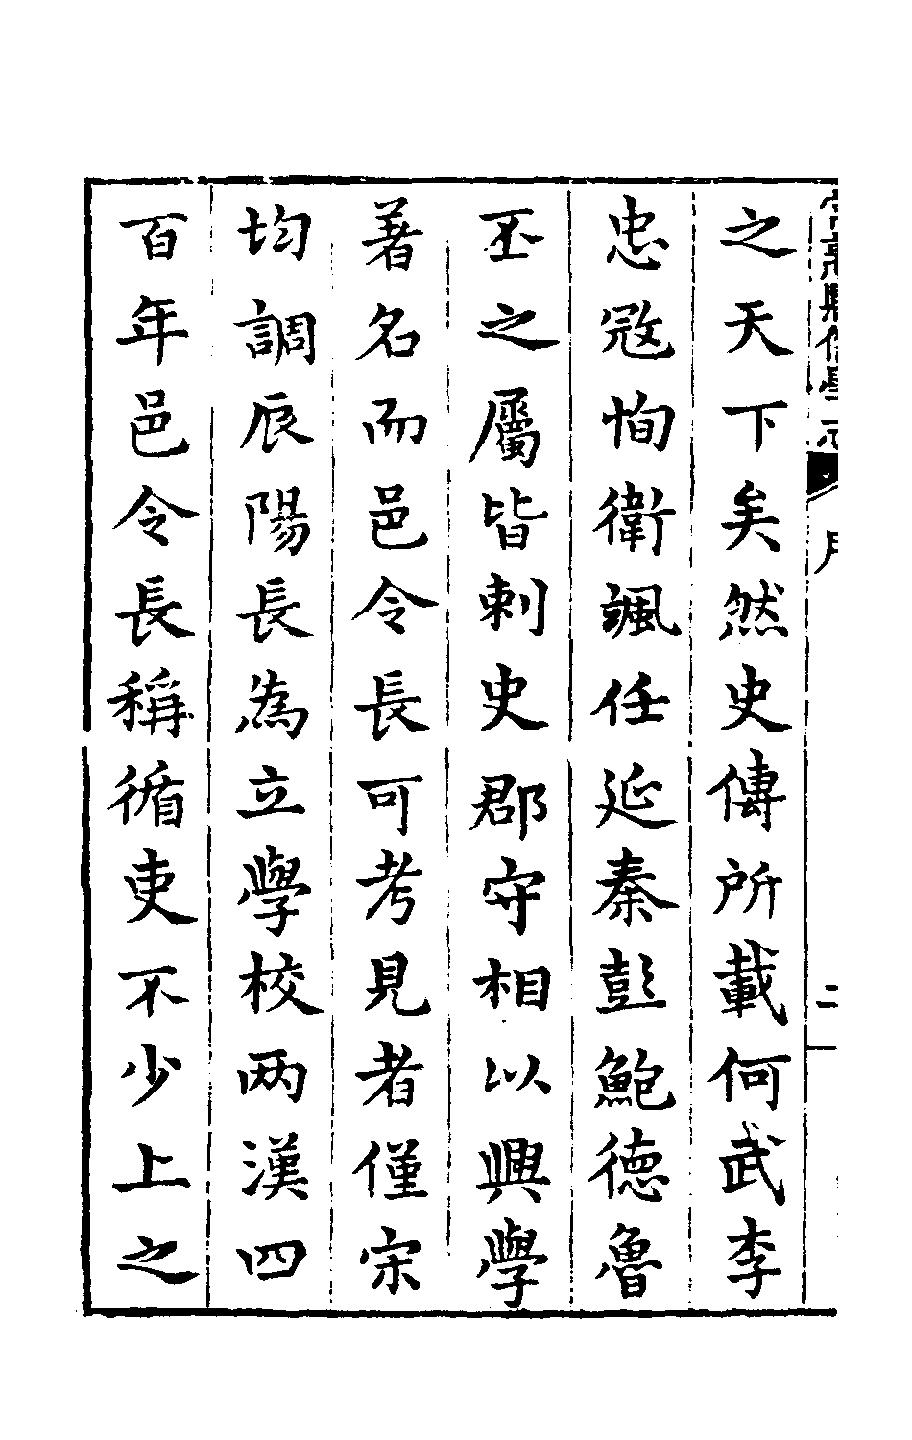 之天下矣然史傳所載何武李
忠冦恂衛颯任延秦彭鮑德魯
丕之屬皆刺史郡守相以興學
著名而邑令長可考見者僅宋
均調辰陽長為立學校两漢四
百年邑令長稱循吏不少上之